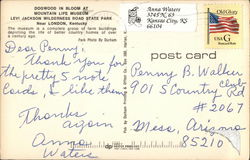 DOGWOOD IN BLOOM AT
MOUNTAIN LIFE MUSEUM
LEVI JACKSON WILDERNESS ROAD STATE PARK
Near LONDON, Kentucky
The museum is a complete group of farm buildings
depicting the life of better country homes of over
a century ago.
Park Photo By Durham
Dear Penny,
Thank you for
the pretty 5 note
Cards, I like them
Thanks
again
Anna
Waters
post card
Anna Waters
Kansas City, KS
66104
Old Glory
USA G
Penny B. Walker
901 S Country Club
#2067
Mesa, Arizona
85210